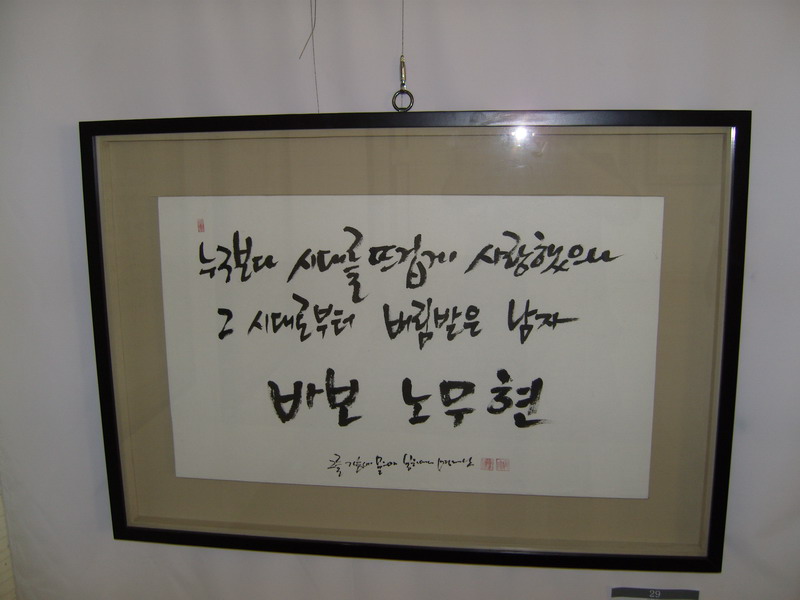 누구보다 시대를 뜨겁게 사랑했으나
그 시대로부터 버림받은 남자
바보 노무현
29